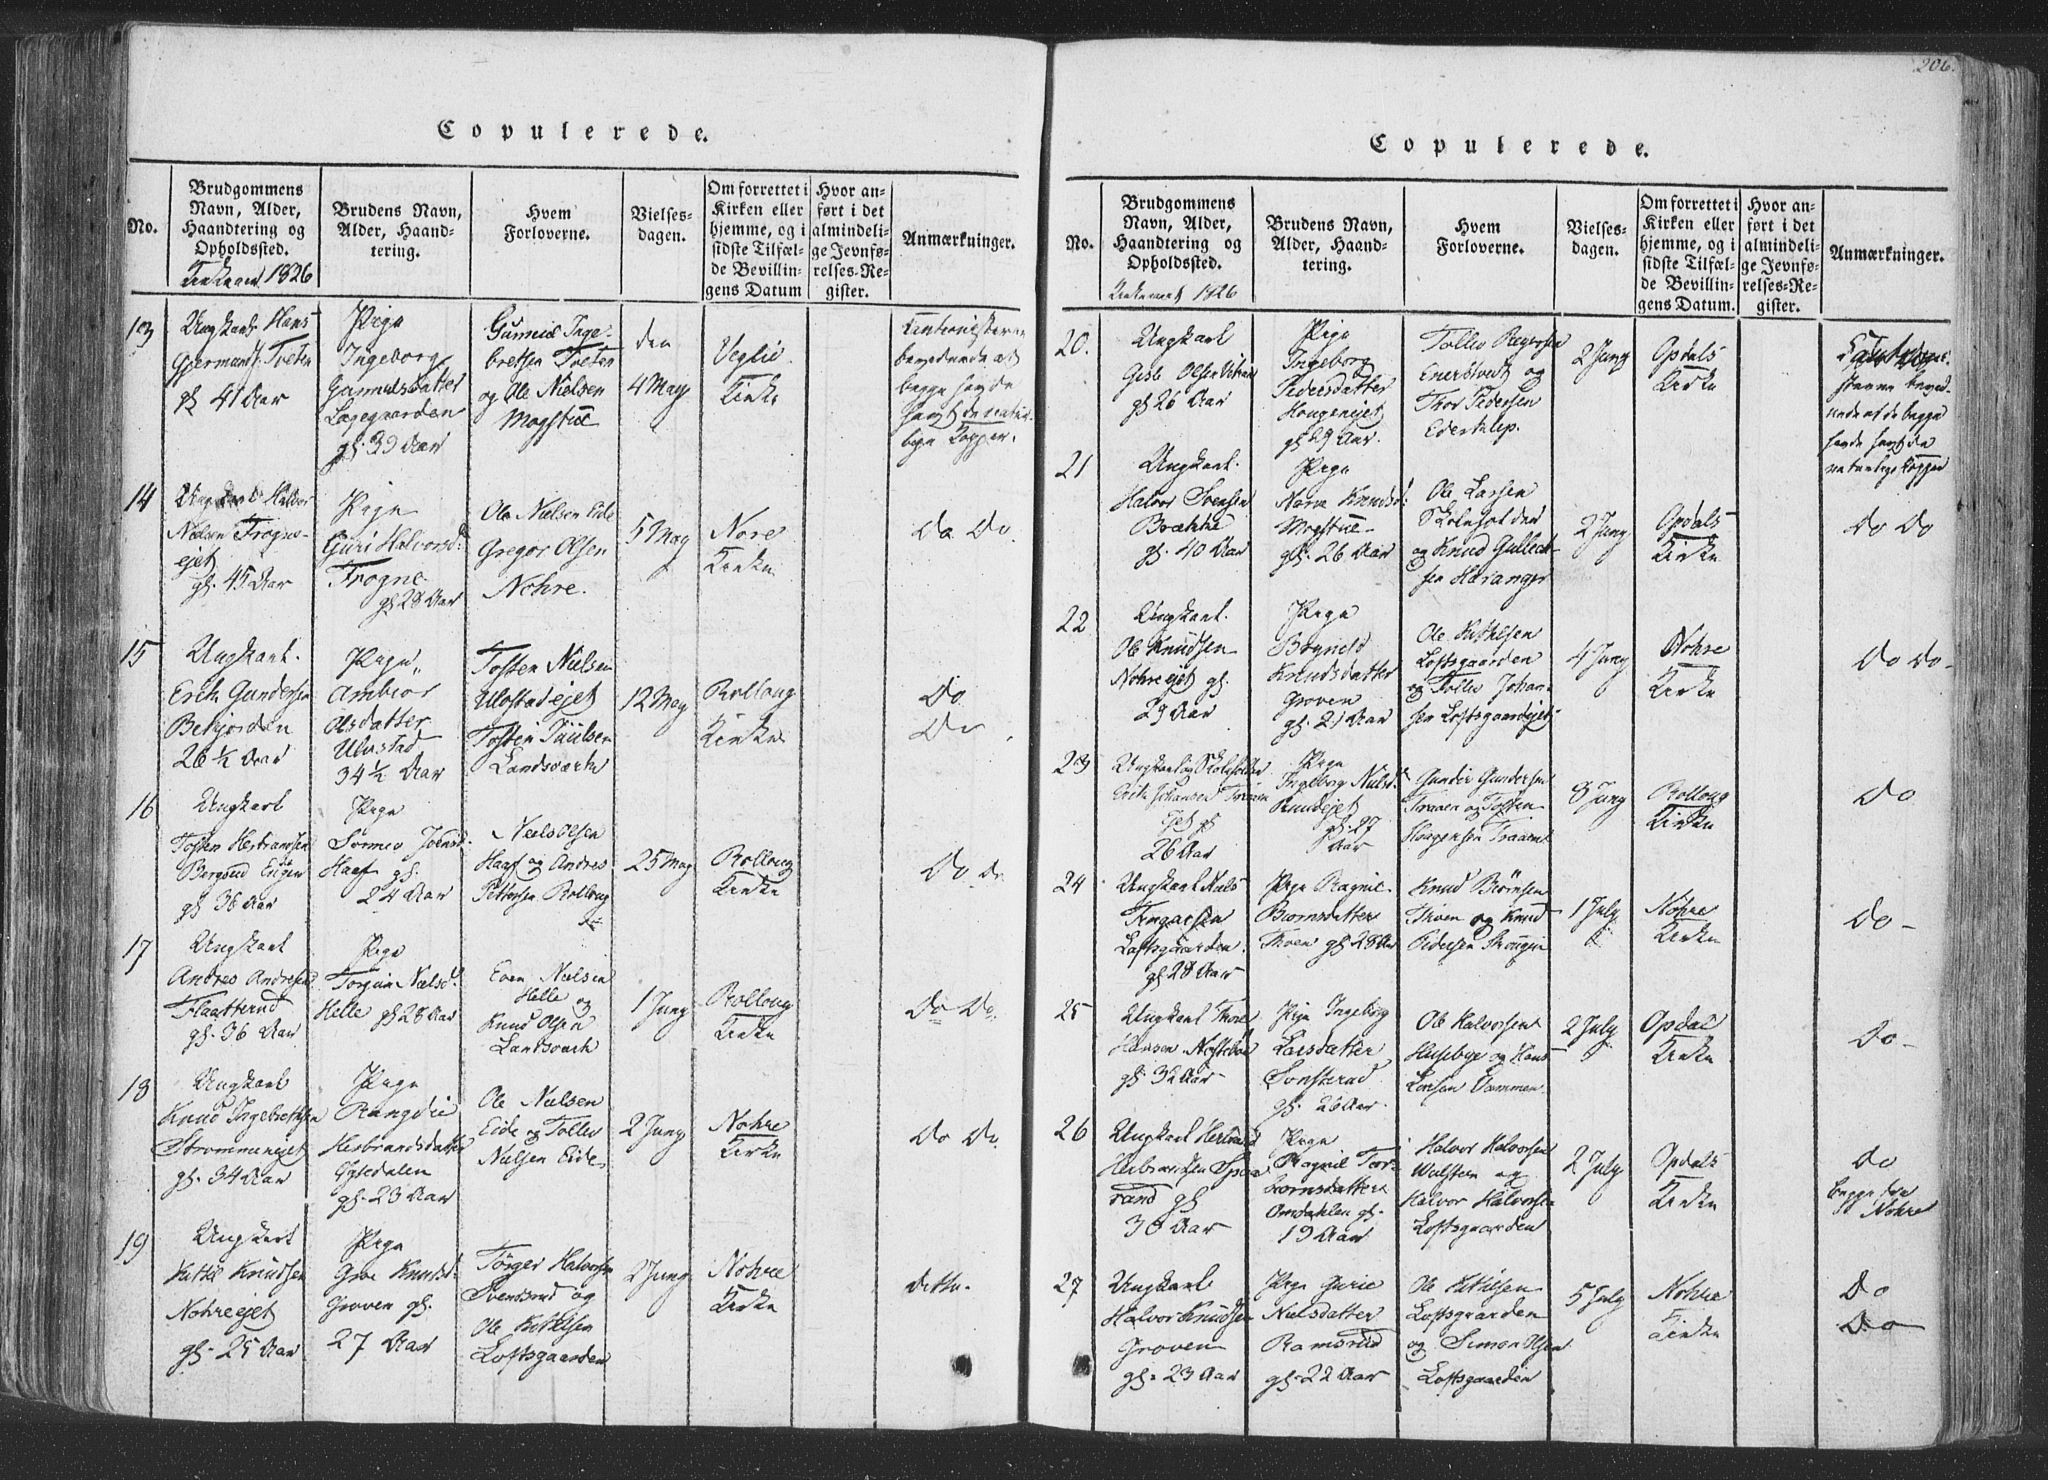 206.
Copulerede.
No.
Brudgommens
Navn, Alder,
Haandtering og
Opholdssted.
1826
Brudens Navn,
Alder, Haand-
tering.
Hvem
Forloverne.
Vielses-
dagen.
Om forrettet i
Kirken eller
hjemme, og i
sidste Tilfæl-
de Bevillin-
gens Datum
Hvor an-
ført i det
almindeli-
ge Jevnfø-
relses-Re-
gister.
Anmærkninger.
13
Ungkarl Hans
Tveten
gl. 41 Aar
Pige
Ingeborg
Gunnulsdatter
Lægegaarden
gl. 39 Aar
Gunnul Inge-
bretsen Tveten
og Ole Nielsen
Mogstue
den
4 May
Veglie
Kirke
begge havde
havt de natur-
lige Kopper.
14
Ungkarl Halvor
Nielsen Frogne-
ejet
gl. 45 Aar
Pige
Guri Halvorsd.
Frogne
gl. 28 Aar
Ole Nielsen Eide
Gregor Olsen
Nohre.
5 May
Nore
Kirke
Do Do.
15
Ungkarl.
Erik Gundersen
Bekjorden
26 ½ Aar
Pige
Ambior
Olsdatter
Ulvstad
34 ½ Aar
Tosten Nielsen
Ulvstadejet
Tosten Juulsen
Landsværk
12 May
Rolloug
Kirke
Do
Do
16
Ungkarl
Tosten Herbransen
Bergsud Eie
gl. 36 Aar
Pige
Joensd.
Haaf gl.
24 Aar
Niels Olsen
Haaf og Andres
Pettersen Rolloug
25 May
Rolloug
Kirke
Do do
17
Ungkarl
Andres Andresen
Flaatterud
gl. 36 Aar
Pige
Torjuun Nielsd.
Helle gl 28 Aar
Even Nielsen
Helle og
Knud Olsen
Landsværk
1 Juny
Rolloug
Kirke
Do Do.
18
Ungkarl
Knud Ingebretsen
Strømmenejet
gl. 34 Aar
Pige
Rangdie
Herbrandsdatter
gl. 23 Aar
Ole Nielsen
Eide og Tollev
Nielsen Eide
2 Juny
Nohre
Kirke
Do Do
19
Ungkarl
Kittil Knudsen
Nohreejet
gl. 25 Aar
Pige
Groe Knudsd.
Groven gl.
27 Aar
Törger Halvorsen
Svendsrud og
Ole Kittilsen
Loftsgaarden
2 Juny
Nohre
Kirke
ditto.
Copulerede.
No.
Brudgommens
Navn, Alder,
Haandtering og
Opholdssted.
1826
Brudens Navn,
Alder, Haand-
tering.
Hvem
Forloverne.
Vielses-
dagen.
Om forrettet i
Kirken eller
hjemme, og i
sidste Tilfæl-
de Bevillin-
gens Datum.
Hvor an-
ført i det
almindeli-
ge Jevnfø-
relses-Re-
gister.
Anmærkninger.
20.
Ungkarl
Gisle Olsen
gl 26 Aar
Pige
Ingeborg
Pedersdatter
Hougenejet
gl 29 Aar.
Tollev Reiersen
Enerstvedt og
Thor Pedersen
2 Juny
Opdals
Kirke
de begge
havde havt de
naturlige Kopper
21
Ungkarl.
Halvor Svensen
Brække
gl. 40 Aar
Pige
Marie Knudsd.
Mogstue
gl. 26 Aar
Ole Larsen
Skoleholder
og Knud Gulleck-
sen
2 Juny
Opdals
Kirke
Do Do
22
Ungkarl.
Ole Knudsen
Nohreejet gl.
29 Aar
Pige
Brynild
Knudsdatter
Groven
gl. 21 Aar
Ole Kittilsen
Loftsgaarden
og Tollev Johan-
sen Loftsgaardejet
4 Juny
Nohre
Kirke
Do Do
23
Ungkarl og Skoleholder
Erik Johansen Traaen
Ejet gl
26 Aar
Pige
Ingeborg Nielsd.
gl. 27
Aar
Gunder Gundersen
Traaen og Tosten
8 Juny
Rolloug
Kirke
Do
24
Ungkarl Niels
Loftsgaarden.
gl. 28 Aar
Pige Ragnil
Biørnsdatter
Thoen gl 28 Aar
Knud Biørnsen
Thoen og Knud
Pedersen
1 July
Nohre
Kirke
Do -
25
Ungkarl Thore
Hansen
gl. 32 Aar
Pige Ingeborg
Larsdatter
Sønsterud
gl. 26 Aar
Ole Halvorsen
Huseby og Hans
Larsen Dammen
2 July
Opdal
Kirke
Do -
26
Ungkarl
Herbrandsen
gl
30 Aar
Pige
Ragnil Tor-
biørnsdatter
Omdahlen gl.
19 Aar
Halvor Halvorsen
og
Halvor Halvorsen
Loftsgaarden
2 July
Opdals
Kirke
Do
begge fra
Nohre
27
Ungkarl
Halvor Knudsen
Groven
gl. 23 Aar
Pige Gurie
Nielsdatter
Ramsrud
gl. 22 Aar
Ole Kittilsen
Loftsgaarden
og Simon Olsen
Loftsgaarden
5 July
Nohre
Kirke
Do
Do